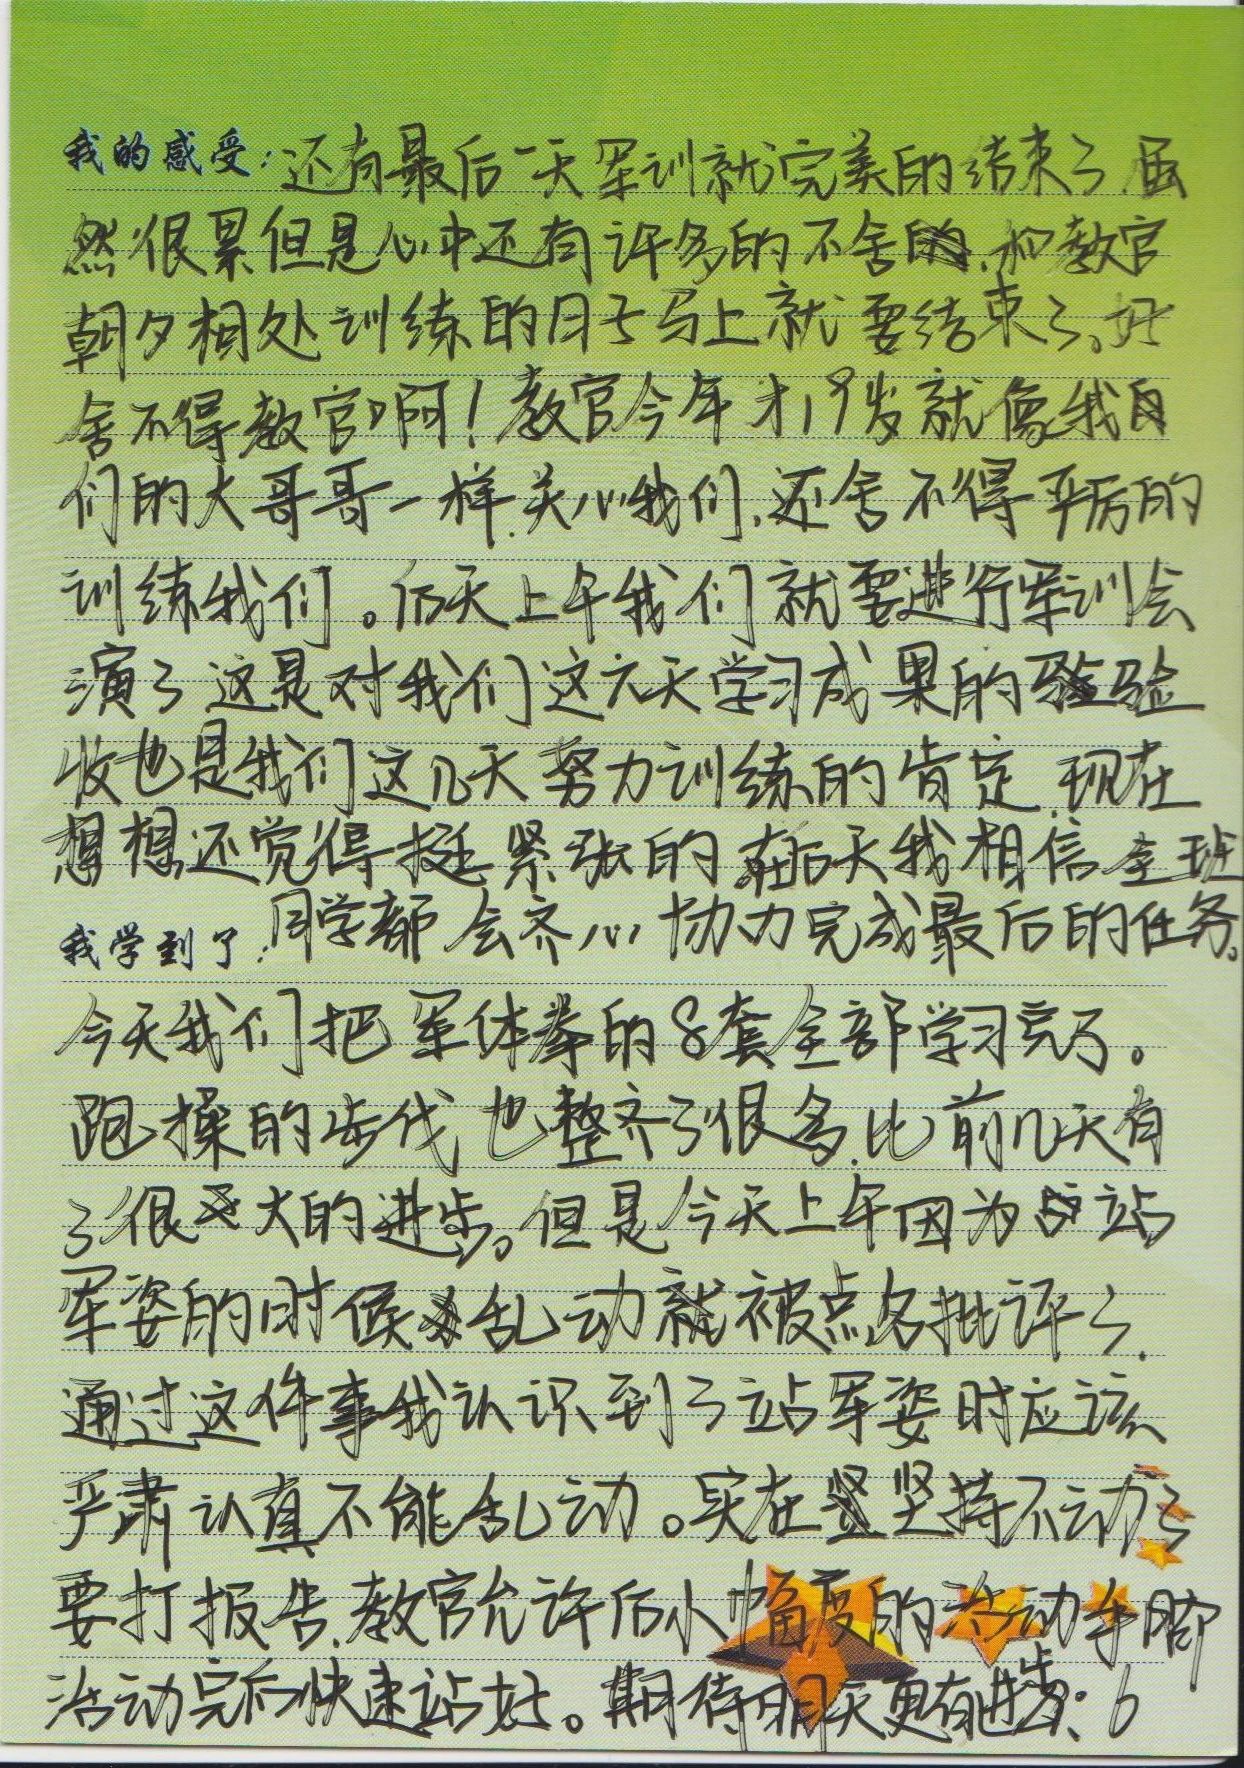 我的感受：还有最后一天军训就完美的结束了虽
然很累但是心中还有许多的不舍,和教官
朝夕相处训练的日子马上就要结束了。好
舍不得教官啊！教官今年才19岁就像我
们的大哥哥一样关心我们,还舍不得严厉的
训练我们。后天上午我们就要进行军训会
演了这是对我们这六天学习成果的验
收也是我们这几天努力训练的肯定,现在
想想还觉得挺紧张的,后天我相信全班
我学到了：同学都会齐心协力完成最后的任务。
今天我们把军体拳的8套全部学习完了。
跑操的步伐也整齐了很多,比前几天有
了很大的进步。但是今天上午因为站
军姿的时候乱动就被点名批评了,
通过这件事我认识到了站军姿时应该
严肃认真不能乱动。实在坚持不动了
要打报告,教官允许后小幅度的活动手脚
活动完后快速站好。期待明天更有进步：6